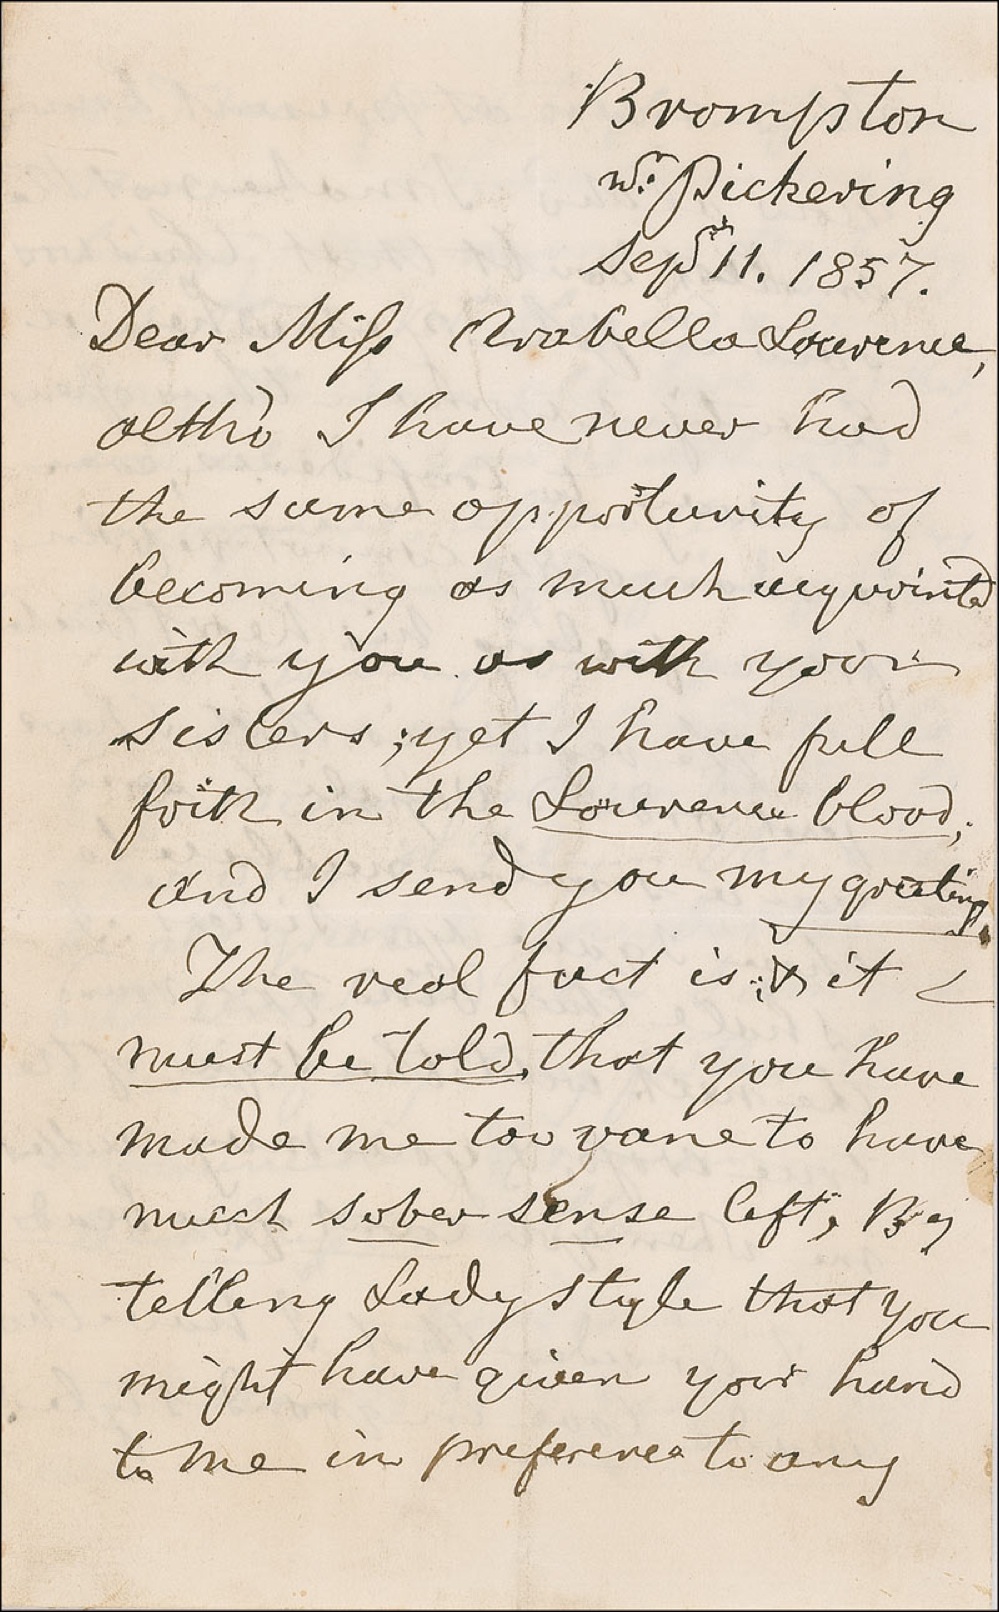 Brompton
nr. Pickering
Sept 11. 1857.
Dear Miss Arabella Lawrence,
altho' I have never had
the same opportunity of
becoming as much acquainted
with you as with your
sisters; yet I have full
faith in the Lawrence blood,
and I send you my greeting.
The real fact is; & it
must be told, that you have
made me too vane to have
much sober sense left, By
telling Lady style that you
might have given your hand
to me in preference to any